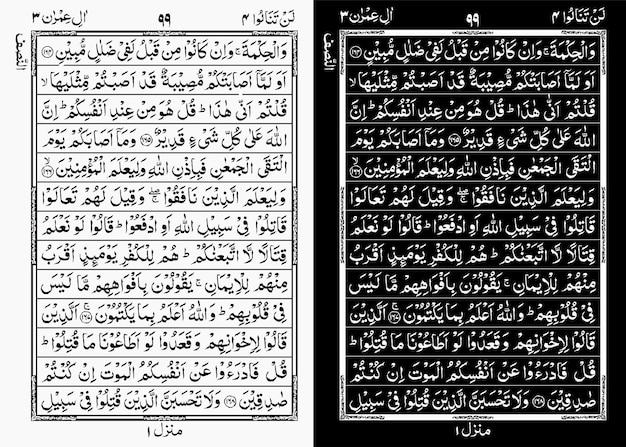 لَنْ تَنَالُوا ٤ ٩٩ اٰلِ عِمْرٰن ٣
النِّصْف
وَالْحِكْمَةَ ۚ وَاِنْ كَانُوْا مِنْ قَبْلُ لَفِىْ ضَلٰلٍ مُّبِيْنٍ ﴿١٦٤﴾
اَوَ لَمَّاۤ اَصَابَتْكُمْ مُّصِيْبَةٌ قَدْ اَصَبْتُمْ مِّثْلَيْهَا ۙ
قُلْتُمْ اَنّٰى هٰذَا ؕ قُلْ هُوَ مِنْ عِنْدِ اَنْفُسِكُمْ ؕ اِنَّ
اللّٰهَ عَلٰى كُلِّ شَىْءٍ قَدِيْرٌ ﴿١٦٥﴾ وَمَاۤ اَصَابَكُمْ يَوْمَ
الْتَقَى الْجَمْعٰنِ فَبِاِذْنِ اللّٰهِ وَلِيَعْلَمَ الْمُؤْمِنِيْنَ ﴿١٦٦﴾ ۙ
وَلِيَعْلَمَ الَّذِيْنَ نَافَقُوْا ۖۚ وَقِيْلَ لَهُمْ تَعَالَوْا
قَاتِلُوْا فِىْ سَبِيْلِ اللّٰهِ اَوِ ادْفَعُوْا ؕ قَالُوْا لَوْ نَعْلَمُ
قِتَالًا لَّا تَّبَعْنٰكُمْ ؕ هُمْ لِلْكُفْرِ يَوْمَئِذٍ اَقْرَبُ
مِنْهُمْ لِلْاِيْمَانِ ۚ يَقُوْلُوْنَ بِاَفْوَاهِهِمْ مَّا لَيْسَ
فِىْ قُلُوْبِهِمْ ؕ وَاللّٰهُ اَعْلَمُ بِمَا يَكْتُمُوْنَ ﴿١٦٧﴾ ۚ اَلَّذِيْنَ
قَالُوْا لِاِخْوَانِهِمْ وَقَعَدُوْا لَوْ اَطَاعُوْنَا مَا قُتِلُوْا ؕ
قُلْ فَادْرَءُوْا عَنْ اَنْفُسِكُمُ الْمَوْتَ اِنْ كُنْتُمْ
صٰدِقِيْنَ ﴿١٦٨﴾ وَلَا تَحْسَبَنَّ الَّذِيْنَ قُتِلُوْا فِىْ سَبِيْلِ
منزل ١
لَنْ تَنَالُوا ٤ ٩٩ اٰلِ عِمْرٰن ٣
النِّصْف
وَالْحِكْمَةَ ۚ وَاِنْ كَانُوْا مِنْ قَبْلُ لَفِىْ ضَلٰلٍ مُّبِيْنٍ ﴿١٦٤﴾
اَوَ لَمَّاۤ اَصَابَتْكُمْ مُّصِيْبَةٌ قَدْ اَصَبْتُمْ مِّثْلَيْهَا ۙ
قُلْتُمْ اَنّٰى هٰذَا ؕ قُلْ هُوَ مِنْ عِنْدِ اَنْفُسِكُمْ ؕ اِنَّ
اللّٰهَ عَلٰى كُلِّ شَىْءٍ قَدِيْرٌ ﴿١٦٥﴾ وَمَاۤ اَصَابَكُمْ يَوْمَ
الْتَقَى الْجَمْعٰنِ فَبِاِذْنِ اللّٰهِ وَلِيَعْلَمَ الْمُؤْمِنِيْنَ ﴿١٦٦﴾ ۙ
وَلِيَعْلَمَ الَّذِيْنَ نَافَقُوْا ۖۚ وَقِيْلَ لَهُمْ تَعَالَوْا
قَاتِلُوْا فِىْ سَبِيْلِ اللّٰهِ اَوِ ادْفَعُوْا ؕ قَالُوْا لَوْ نَعْلَمُ
قِتَالًا لَّا تَّبَعْنٰكُمْ ؕ هُمْ لِلْكُفْرِ يَوْمَئِذٍ اَقْرَبُ
مِنْهُمْ لِلْاِيْمَانِ ۚ يَقُوْلُوْنَ بِاَفْوَاهِهِمْ مَّا لَيْسَ
فِىْ قُلُوْبِهِمْ ؕ وَاللّٰهُ اَعْلَمُ بِمَا يَكْتُمُوْنَ ﴿١٦٧﴾ ۚ اَلَّذِيْنَ
قَالُوْا لِاِخْوَانِهِمْ وَقَعَدُوْا لَوْ اَطَاعُوْنَا مَا قُتِلُوْا ؕ
قُلْ فَادْرَءُوْا عَنْ اَنْفُسِكُمُ الْمَوْتَ اِنْ كُنْتُمْ
صٰدِقِيْنَ ﴿١٦٨﴾ وَلَا تَحْسَبَنَّ الَّذِيْنَ قُتِلُوْا فِىْ سَبِيْلِ
منزل ١